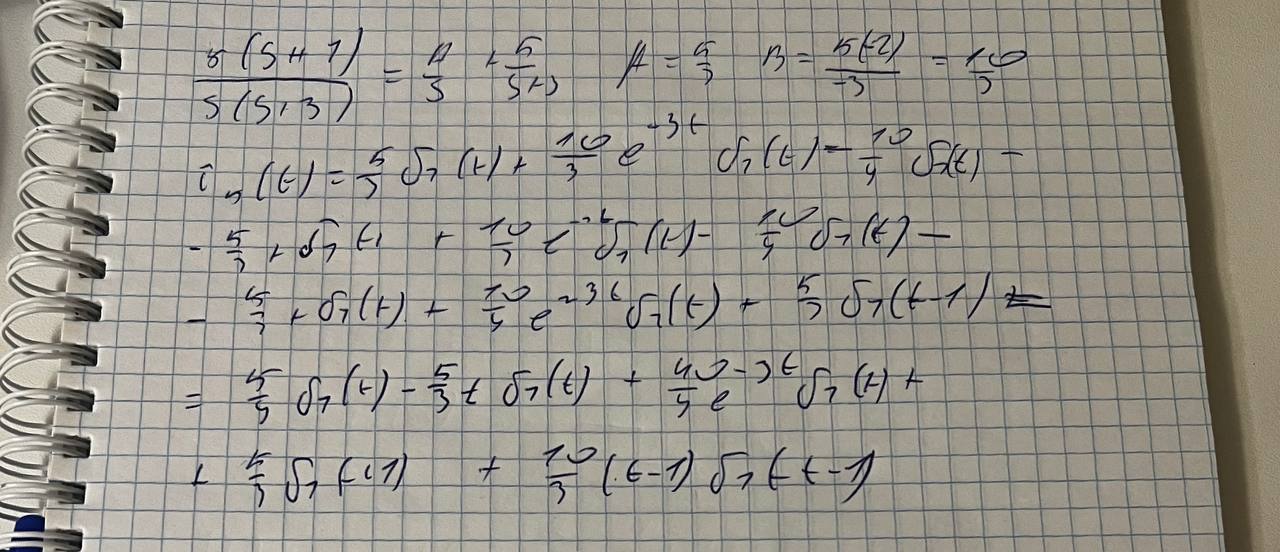 5(S+1)/S(S+3) = A/S + B/S+3 A = 5/3 B = 5(-2)/-3 = 10/3
i₃(t) = 5/3 δ₁(t) + 10/3 e^-3t δ₁(t) - 10/3 δ₁(t) -
- 5/3 t δ₁(t) + 10/3 e^-3t δ₁(t) - 10/3 δ₁(t) -
- 5/3 t δ₁(t) + 10/3 e^-3t δ₁(t) + 5/3 δ₁(t-1) =
= 5/3 δ₁(t) - 5/3 t δ₁(t) + 40/3 e^-3t δ₁(t) +
+ 5/3 δ₁(t-1) + 10/3 (t-1) δ₁(t-1)